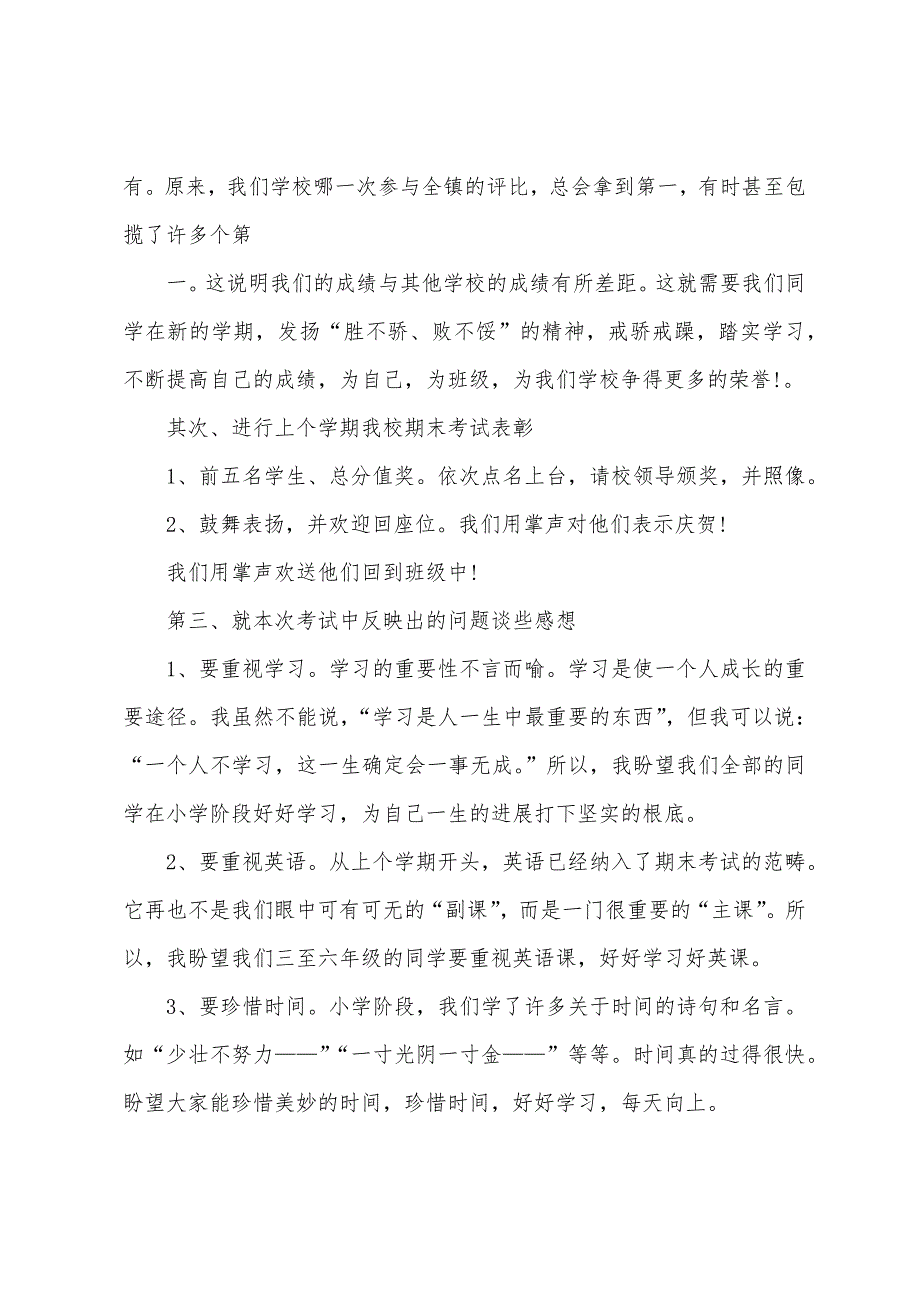 有。原来，我们学校哪一次参与全镇的评比，总会拿到第一，有时甚至包
揽了许多个第
一。这说明我们的成绩与其他学校的成绩有所差距。这就需要我们同
学在新的学期，发扬“胜不骄、败不馁”的精神，戒骄戒躁，踏实学习，
不断提高自己的成绩，为自己，为班级，为我们学校争得更多的荣誉!。
其次、进行上个学期我校期末考试表彰
1、前五名学生、总分值奖。依次点名上台，请校领导颁奖，并照像。
2、鼓舞表扬，并欢迎回座位。我们用掌声对他们表示庆贺!
我们用掌声欢送他们回到班级中!
第三、就本次考试中反映出的问题谈些感想
1、要重视学习。学习的重要性不言而喻。学习是使一个人成长的重
要途径。我虽然不能说，“学习是人一生中最重要的东西”，但我可以说：
“一个人不学习，这一生确定会一事无成。”所以，我盼望我们全部的同
学在小学阶段好好学习，为自己一生的进展打下坚实的根底。
2、要重视英语。从上个学期开头，英语已经纳入了期末考试的范畴。
它再也不是我们眼中可有可无的“副课”，而是一门很重要的“主课”。所
以，我盼望我们三至六年级的同学要重视英语课，好好学习好英课。
3、要珍惜时间。小学阶段，我们学了许多关于时间的诗句和名言。
如“少壮不努力——”“一寸光阴一寸金——”等等。时间真的过得很快。
盼望大家能珍惜美妙的时间，珍惜时间，好好学习，每天向上。